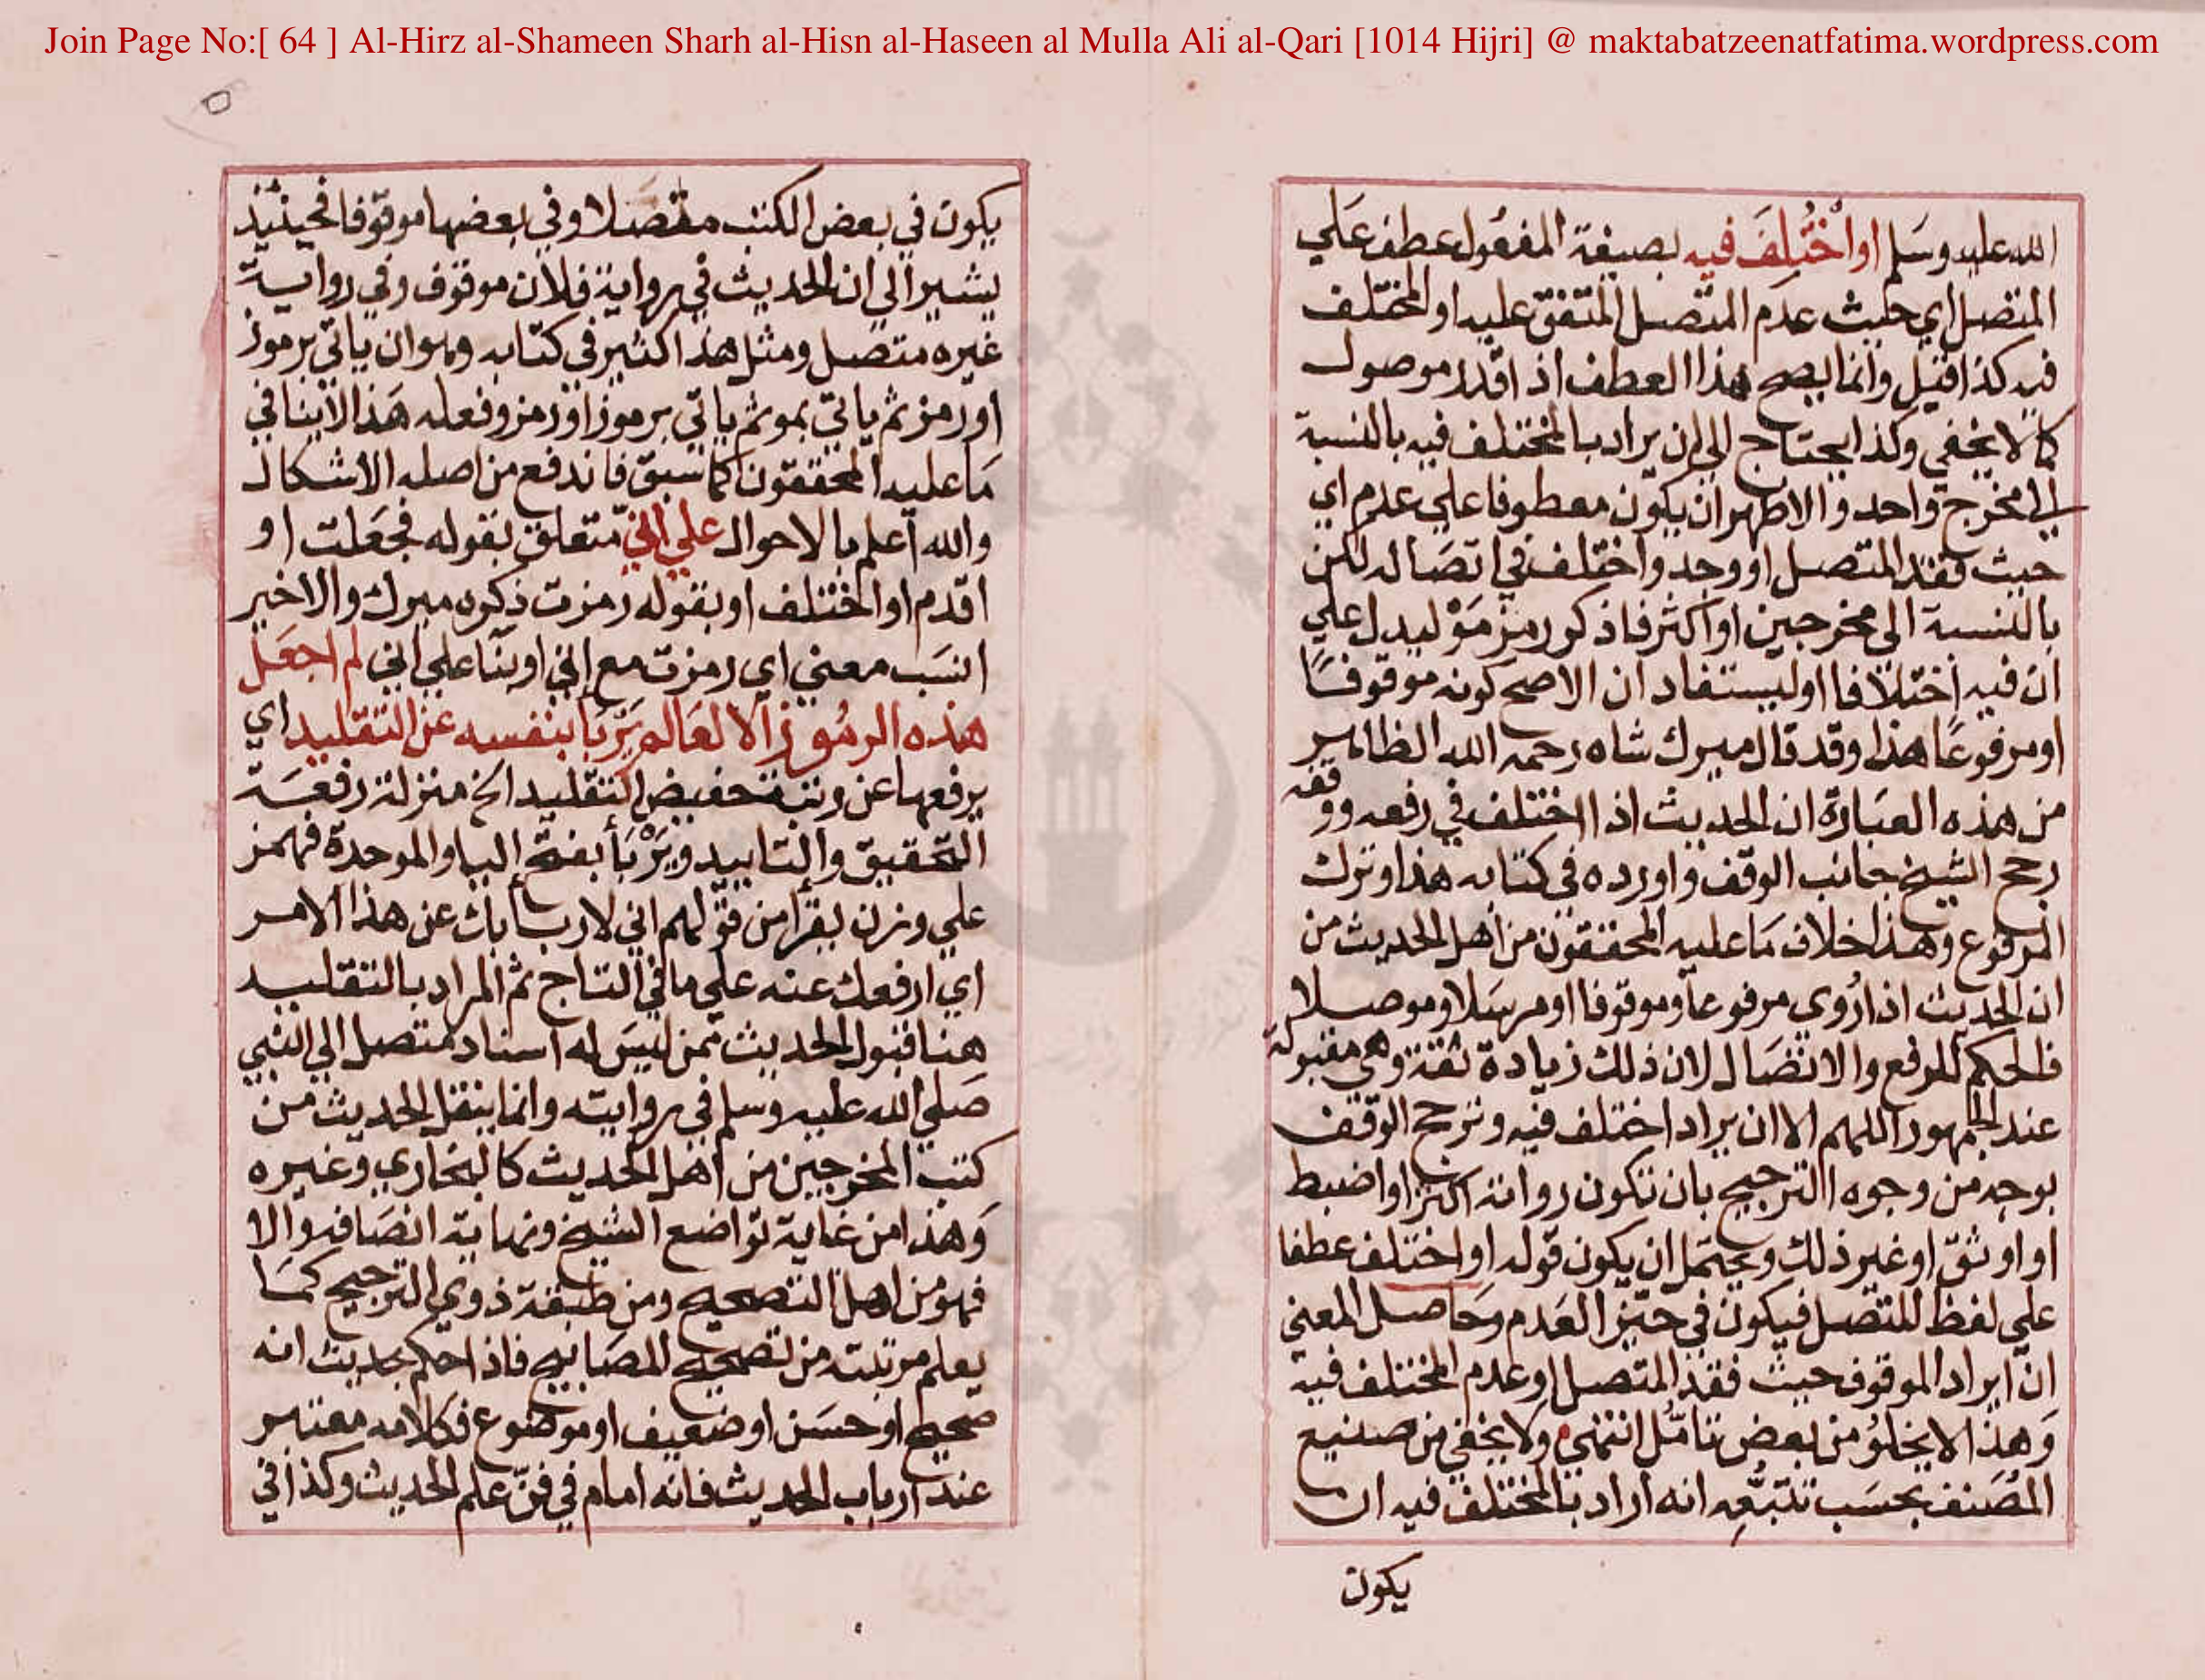 Join Page No:[ 64 ] Al-Hirz al-Shameen Sharh al-Hisn al-Haseen al Mulla Ali al-Qari [1014 Hijri] @ maktabatzeenatfatima.wordpress.com
الله عليه وسلم او اُخْتُلِفَ فيه بصيغة المفعول عطف علي
المتصل اي حيث عدم المتصل المتفق عليه او المختلف
فيه كذا قيل وانما يصح هذا العطف اذا قدر موصول
كما لا يخفي وكذا يحتاج الي ان يراد بالمختلف فيه بالنسبة
الي مخرج واحد والاظهر ان يكون معطوفا علي عدم اي
حيث فقد المتصل او وجد واختلف في اتصاله لكن
بالنسبة الى مخرجين او اكثر فاذكر رمز مَوْ ليدل علي
ان فيه اختلافا او ليستفاد ان الاصح كونه موقوفًا
او مرفوعا هذا وقد قال ميرك شاه رحمه الله الظاهر
من هذه العبارة ان الحديث اذا اختلف في رفعه ووقفه
رجح الشيخ جانب الوقف واورده في كتابه هذا وترك
المرفوع وهذا خلاف ما عليه المحققون من اهل الحديث من
ان الحديث اذا رُوي مرفوعا وموقوفا او مرسلا وموصلا
فالحكم للرفع والاتصال لان ذلك زيادة ثقة وهي مقبولة
عند الجمهور اللهم الا ان يراد اختلف فيه وترجح الوقف
بوجه من وجوه الترجيح بان تكون رواته اكثر او اضبط
او اوثق او غير ذلك ويحتمل ان يكون قوله او اختلف عطفا
علي لفظ المتصل فيكون في حيز العدم وحاصل المعني
ان ايراد الموقوف حيث فقد المتصل او عدم المختلف فيه
وهذا لا يخلو من بعض تامّل انتهي ولا يخفي من صنيع
المصنف بحسب تتبعه انه اراد بالمختلف فيه ان
يكون
يكون في بعض الكتب متصلا وفي بعضها موقوفا فحينئذ
يشير الي ان الحديث في رواية فلان موقوف وفي رواية
غيره متصل ومثل هذا كثير في كتابه وهو ان ياتي برموز
او رمز ثم ياتي بمو ثم ياتي برموز او رمز وفعله هذا لا ينافي
ما عليه المحققون كما سبق فاندفع من اصله الاشكال
والله اعلم بالاحوال علي اني متعلق بقوله فجعلت او
اقدم او المختلف او بقوله رمزت ذكره ميرك والاخير
انسب معني اي رمزت مع اني او بنا علي اني لم اجعل
هذه الرموز الا لعالم يَرْبَا بنفسه عن التقليد اي
يرفعها عن رتبة حضيض التقليد الخ منزلة رفعة
التحقيق والتاييد ويَرْبَأ بفتح اليا والموحدة فهمز
علي وزن يقرا من قولهم اني لاربا بك عن هذا الامر
اي ارفعك عنه علي ما في التاج ثم المراد بالتقليد
هنا قبول الحديث ممن ليس له اسناد متصل الي النبي
صلي الله عليه وسلم في روايته وانما ينقل الحديث من
كتب المخرجين من اهل الحديث كالبخاري وغيره
وهذا من غاية تواضع الشيخ ونهاية انصافه والا
فهو من اهل التصحيح ومن طبقة ذوي الترجيح كما
يعلم مرتبته من تصحيح المصابيح فاذا حكم بحديث انه
صحيح او حسن او ضعيف او موضوع فكلامه معتبر
عند ارباب الحديث فانه امام في فنّ علم الحديث وكذا في